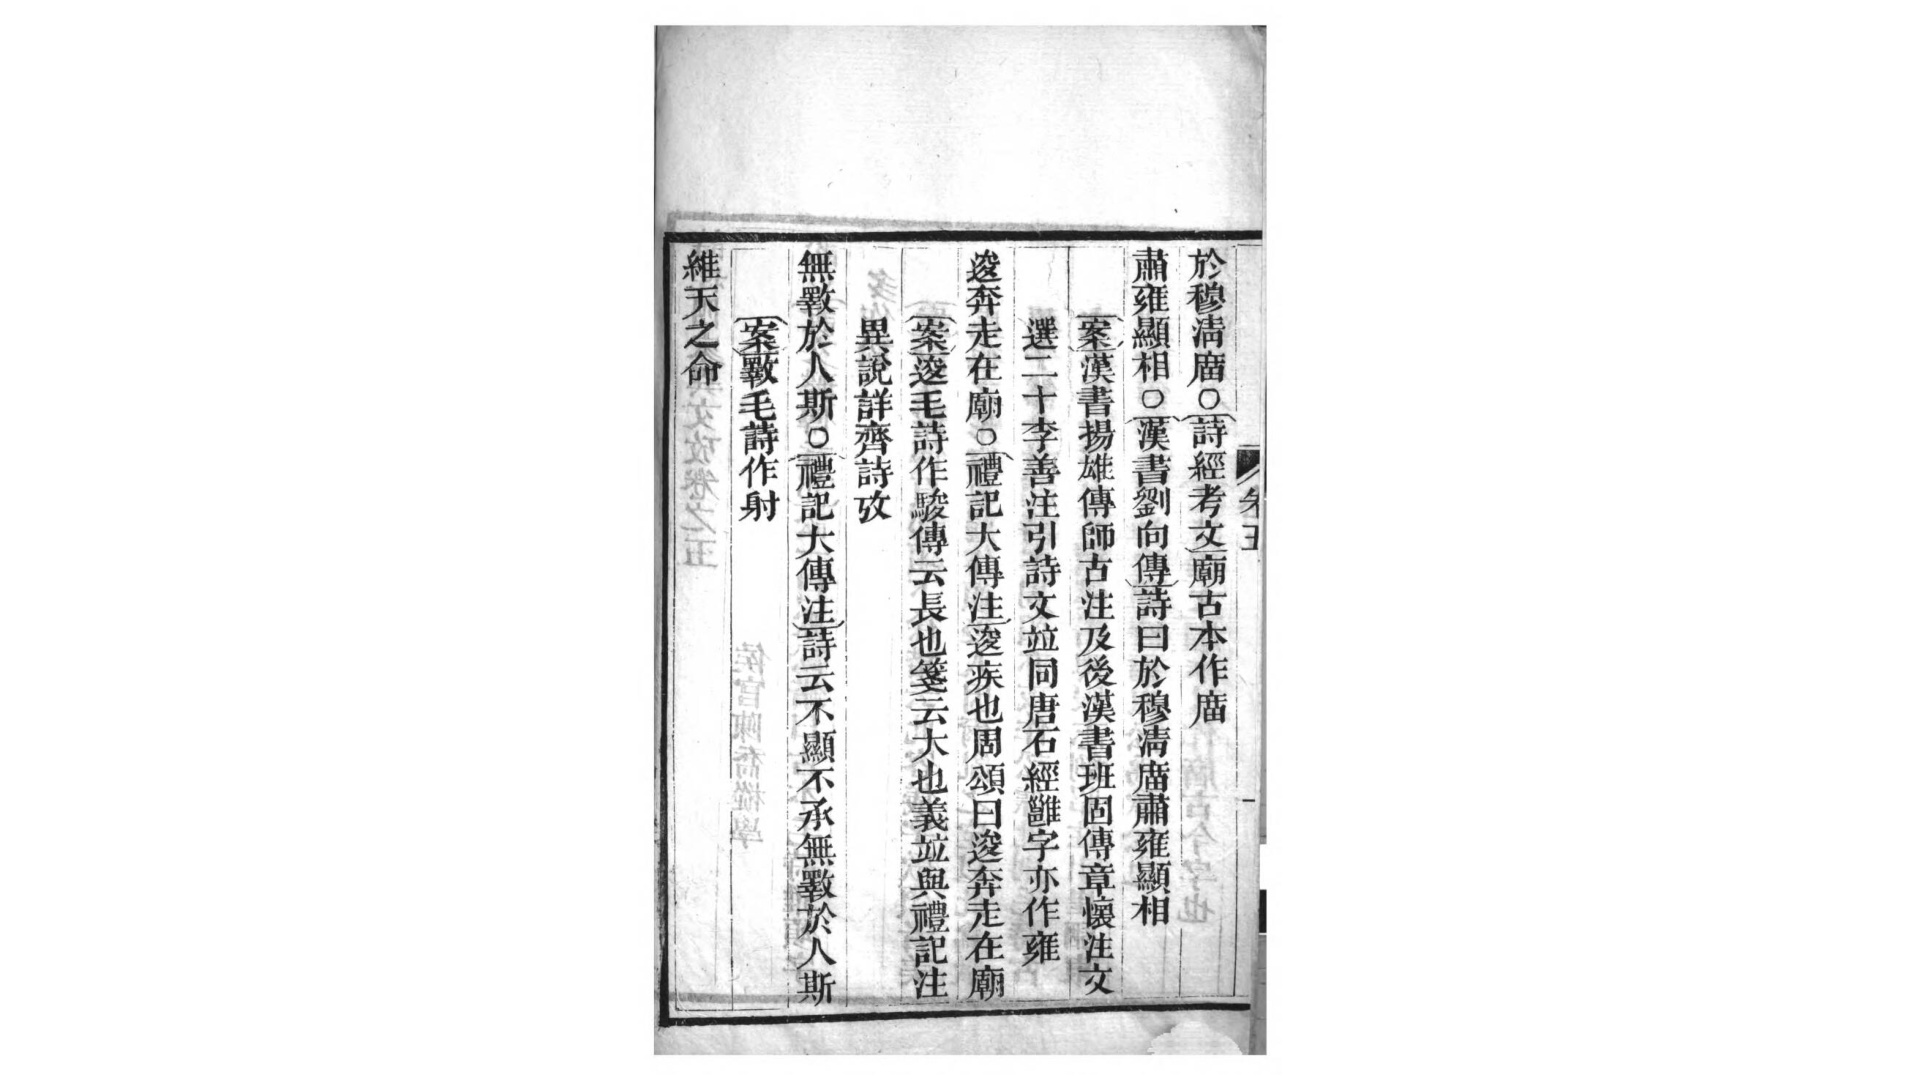 於穆淸庿○詩經考文廟古本作庿
肅雍顯相○漢書劉向傳詩曰於穆淸庿肅雍顯相
案漢書揚雄傳師古注及後漢書班固傳章懷注文
選二十李善注引詩文竝同唐石經雝字亦作雍
逡奔走在廟○禮記大傳注逡疾也周頌曰逡奔走在廟
案逡毛詩作駿傳云長也箋云大也義竝與禮記注
異說詳齊詩攷
無斁於人斯○禮記大傳注詩云不顯不承無斁於人斯
案斁毛詩作射
維天之命